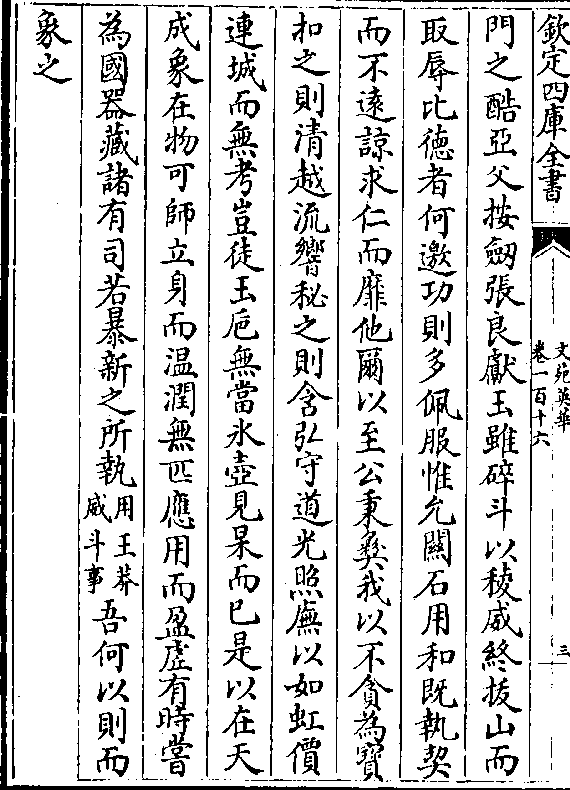 欽定四庫全書
文苑英華
卷一百十六
三
門之酷亞父按劒張良獻玉雖碎斗以稜威終拔山而
取辱比德者何邀功則多佩服惟允關石用和既執契
而不逺諒求仁而靡他爾以至公秉彝我以不貪為寳
扣之則清越流響秘之則含弘守道光照廡以如虹價
連城而無考豈徒玉巵無當氷壺見杲而已是以在天
成象在物可師立身而温潤無匹應用而盈虛有時嘗
為國器藏諸有司若暴新之所執用王莽威斗事吾何以則而
象之